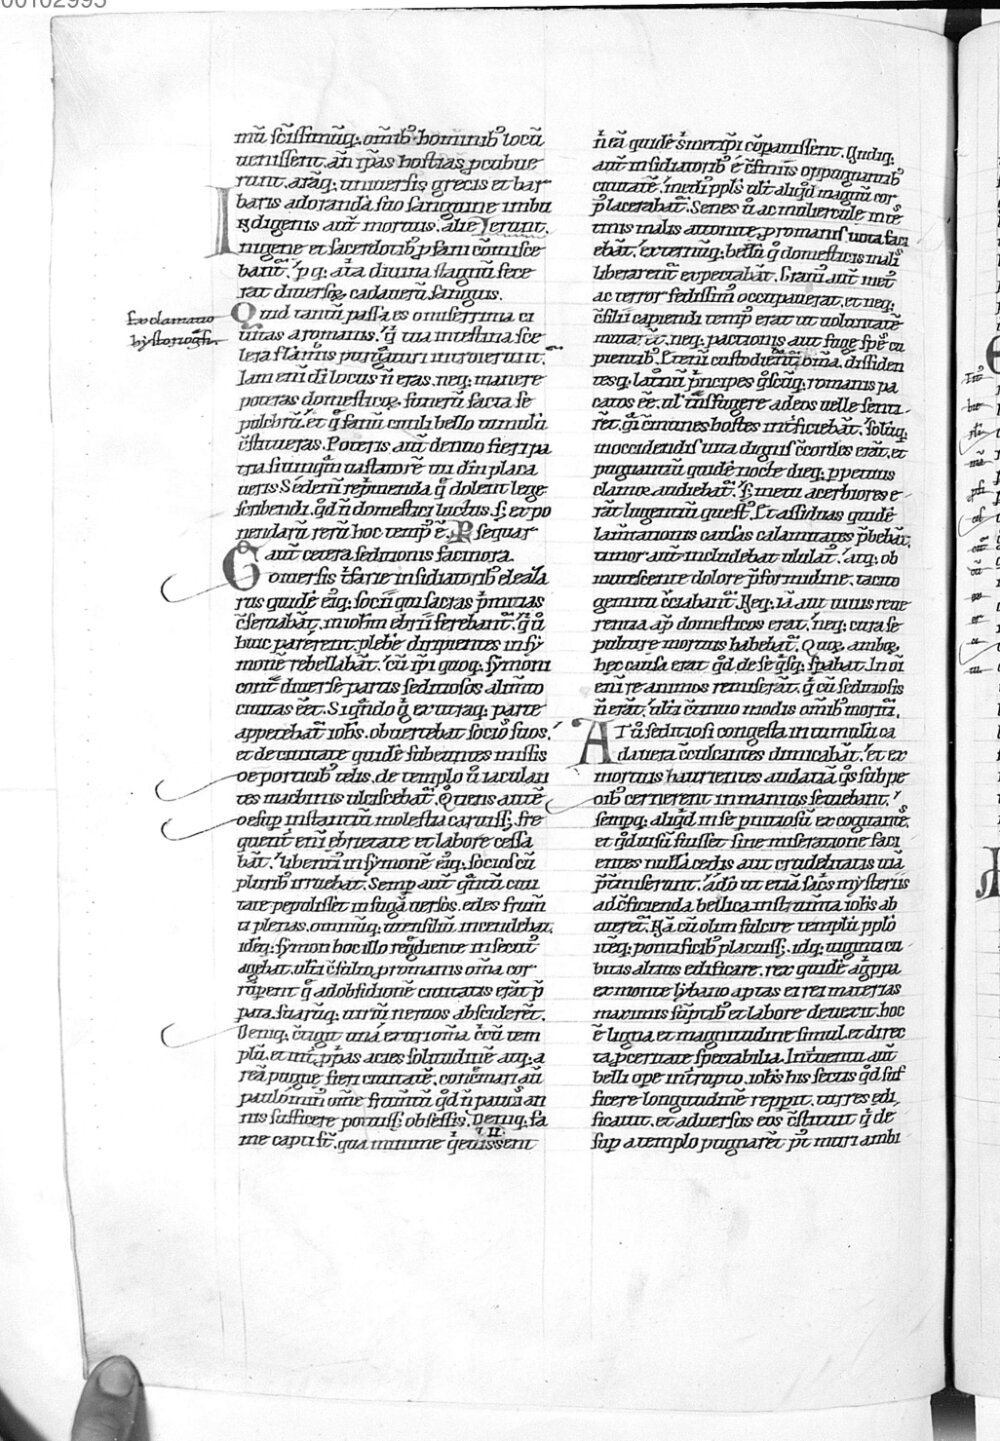 00102995
mū sc̄issimūq; om̄ib᷒ hominib᷒ locū
uenissent. an̄ ip̄as hostias pcubue
runt. arāq; uniuersis grecis et bar
baris adorandā suo sanguine imbu
Indigenis aut̄ mortuis. alie Ierunt.
nigene et sacerdotib᷒ pfani cōmisce
bant̄.
rat diuersoꝝ cadauerū sanguis.
Exclamatio
hystoriogͣphi.
Quid tantū passa es o miserrima ci
uitas a romanis. q̄ tua intestina sce
lera flāmis purgaturi introierunt.
Iam eni di locus n̄ eras. neq; manere
poteras domesticoꝝ funerū facta se
pulchrū. et q̄ fanū ciuili bello tumulū
c̄stitueras. Poteris aut̄ denuo fieri pa
ueris. Sed eni repͥmenda q̄ dolent lege
scribendi. qd̄ n̄ domestici luctus. s; expo
nendarū rerū hoc temp᷒ ē. Psequar
aut̄ cetera seditionis facinora.
rus quidē eiq; socii qui sacras pͥmitias
c̄seruabāt. in iohm̄ ebrii ferebant̄.
huic parerent. plebē diripientes in sy
monē rebellabāt. cū ip̄i quoq; symoni
cont̄ diuerse partis seditiosos alim̄to
ciuitas eēt. Siqn̄do g᷒ ex utraq; parte
appetebat̄ iohs. obuertebat socios suos.
et de ciuitate quidē subeuntes missis
de porticib᷒ telis. de templo ū iaculan
tes machinis ulciscebat̄. Quotiens autē
desup instantiū molestia caruiss;. fre
quent̄ eni ebrietate et labore cessa
bāt. libenti in symonē eiq; socios cū
plurib᷒ irruebat. Semp aut̄ qͣntū ciui
tate pepulisset in fugā uersos. edes frum̄
ti plenas. omniūq; utensiliū incendebat.
idēq; symon hoc illo regͥdiente in secut᷒
agebat. ueluti c̄sulto p romanis om̄a cor
rūpent. q̄ ad obsidionē ciuitatis erāt p̄
pata. suarūq; uirtiū neruos absciderēt.
Deniq; c̄tigit
plū. et in
reā pugne fieri ciuitatē. concͥmari aū
paulominͥ om̄e frum̄tū qd̄ n̄ paucis an
nis sufficere potuiss; obsessis. Deniq; fa
me capti st̄. qua minime quissent
n̄ eā quidē s̄ment ip̄i cōpauissent. Undiq;
aut̄ insidiatorib᷒ & c̄finiis oppugnantib᷒
ciuitatē. medi᷒ ppls ut aliqd̄ magnū cor
p᷒ lacerabat̄. Senes ū ac muliercule inte
tinis malis attonite. p romanis uota faci
ebāt. externūq; bellū q̄ domesticis malis
liberarent̄ expectabāt. Grauis aut̄ metus
ac terror sedissim᷒ occupauerat. et neq;
c̄silii capiendi temp᷒ erat ut uoluntatē
mutarēt. neq; pactionis aut fuge spes cu
pientib᷒. Eteni custodiebant̄ om̄a. dissiden
tesq; latronū pͥncipes quoscūq; romanis pa
catos eē. ul̄ tͣnsfugere ad eos uelle sensi
rēt. qͣsi cōmunes hostes int̄ficiebāt. soluq;
in occidendis uita dignis c̄cordes erāt. et
pugnantiū quidē nocte dieq; ppetuus
clamor audiebat̄. s; metu acerbiores e
rāt lugentiū quest᷒. Et assiduas quidē
lam̄tationis causas calamitates pͥbebāt.
timor aut̄ includebat ululat᷒. atq; ob
mutescente dolore p formidine. tacito
gemitu c̄ciabant̄. Neq; iā aut uiuis reue
rentia ap᷒ domesticos erat. neq; cura se
pulture mortuis habebat̄. Quoꝝ amboꝝ
hec causa erat. qd̄ de se qͥsq; spabat. In oi
eni re animos remiserāt. q̄ cū seditiosis
n̄ erāt. ueluti c̄tinuo modis om̄ib᷒ moritū.
At ū seditiosi congesta in cumulū ca
dauera c̄culcantes dimicabāt. et ex
mortuis haurientes audaciā qͦs sub pe
dib᷒ cernerent in manius seuiebant.
sempq; aliqd̄ in se pnitiosū excogitantes.
et qd̄ uisū fuisset sine miseratione faci
entes nullā cedis aut crudelitatis uiā
p̄tͥmiserunt. ado ut etiā sac̄s mysteriis
ad c̄ficienda bellica instrum̄ta iohs ab
uteret̄. Nā cū olim fulcire templū pplo
iteq; pontificib᷒ placuiss;. idq; uiginti cu
bitis altius edificare. rex quidē agͥppa
ex monte lybano aptas ei rei materias
maximis sūptib᷒ et labore deuexit. hoc
ē ligna et magnitudine simul. et direc
ta pceritate spectabilia. Interuentu aut̄
belli ope interrupto. iohs his sectis qd̄ suf
ficere longitudinē reppit. turres edi
ficauit. et aduersus eos c̄stituit q̄ de
sup a templo pugnarēt. pͭ muri ambi